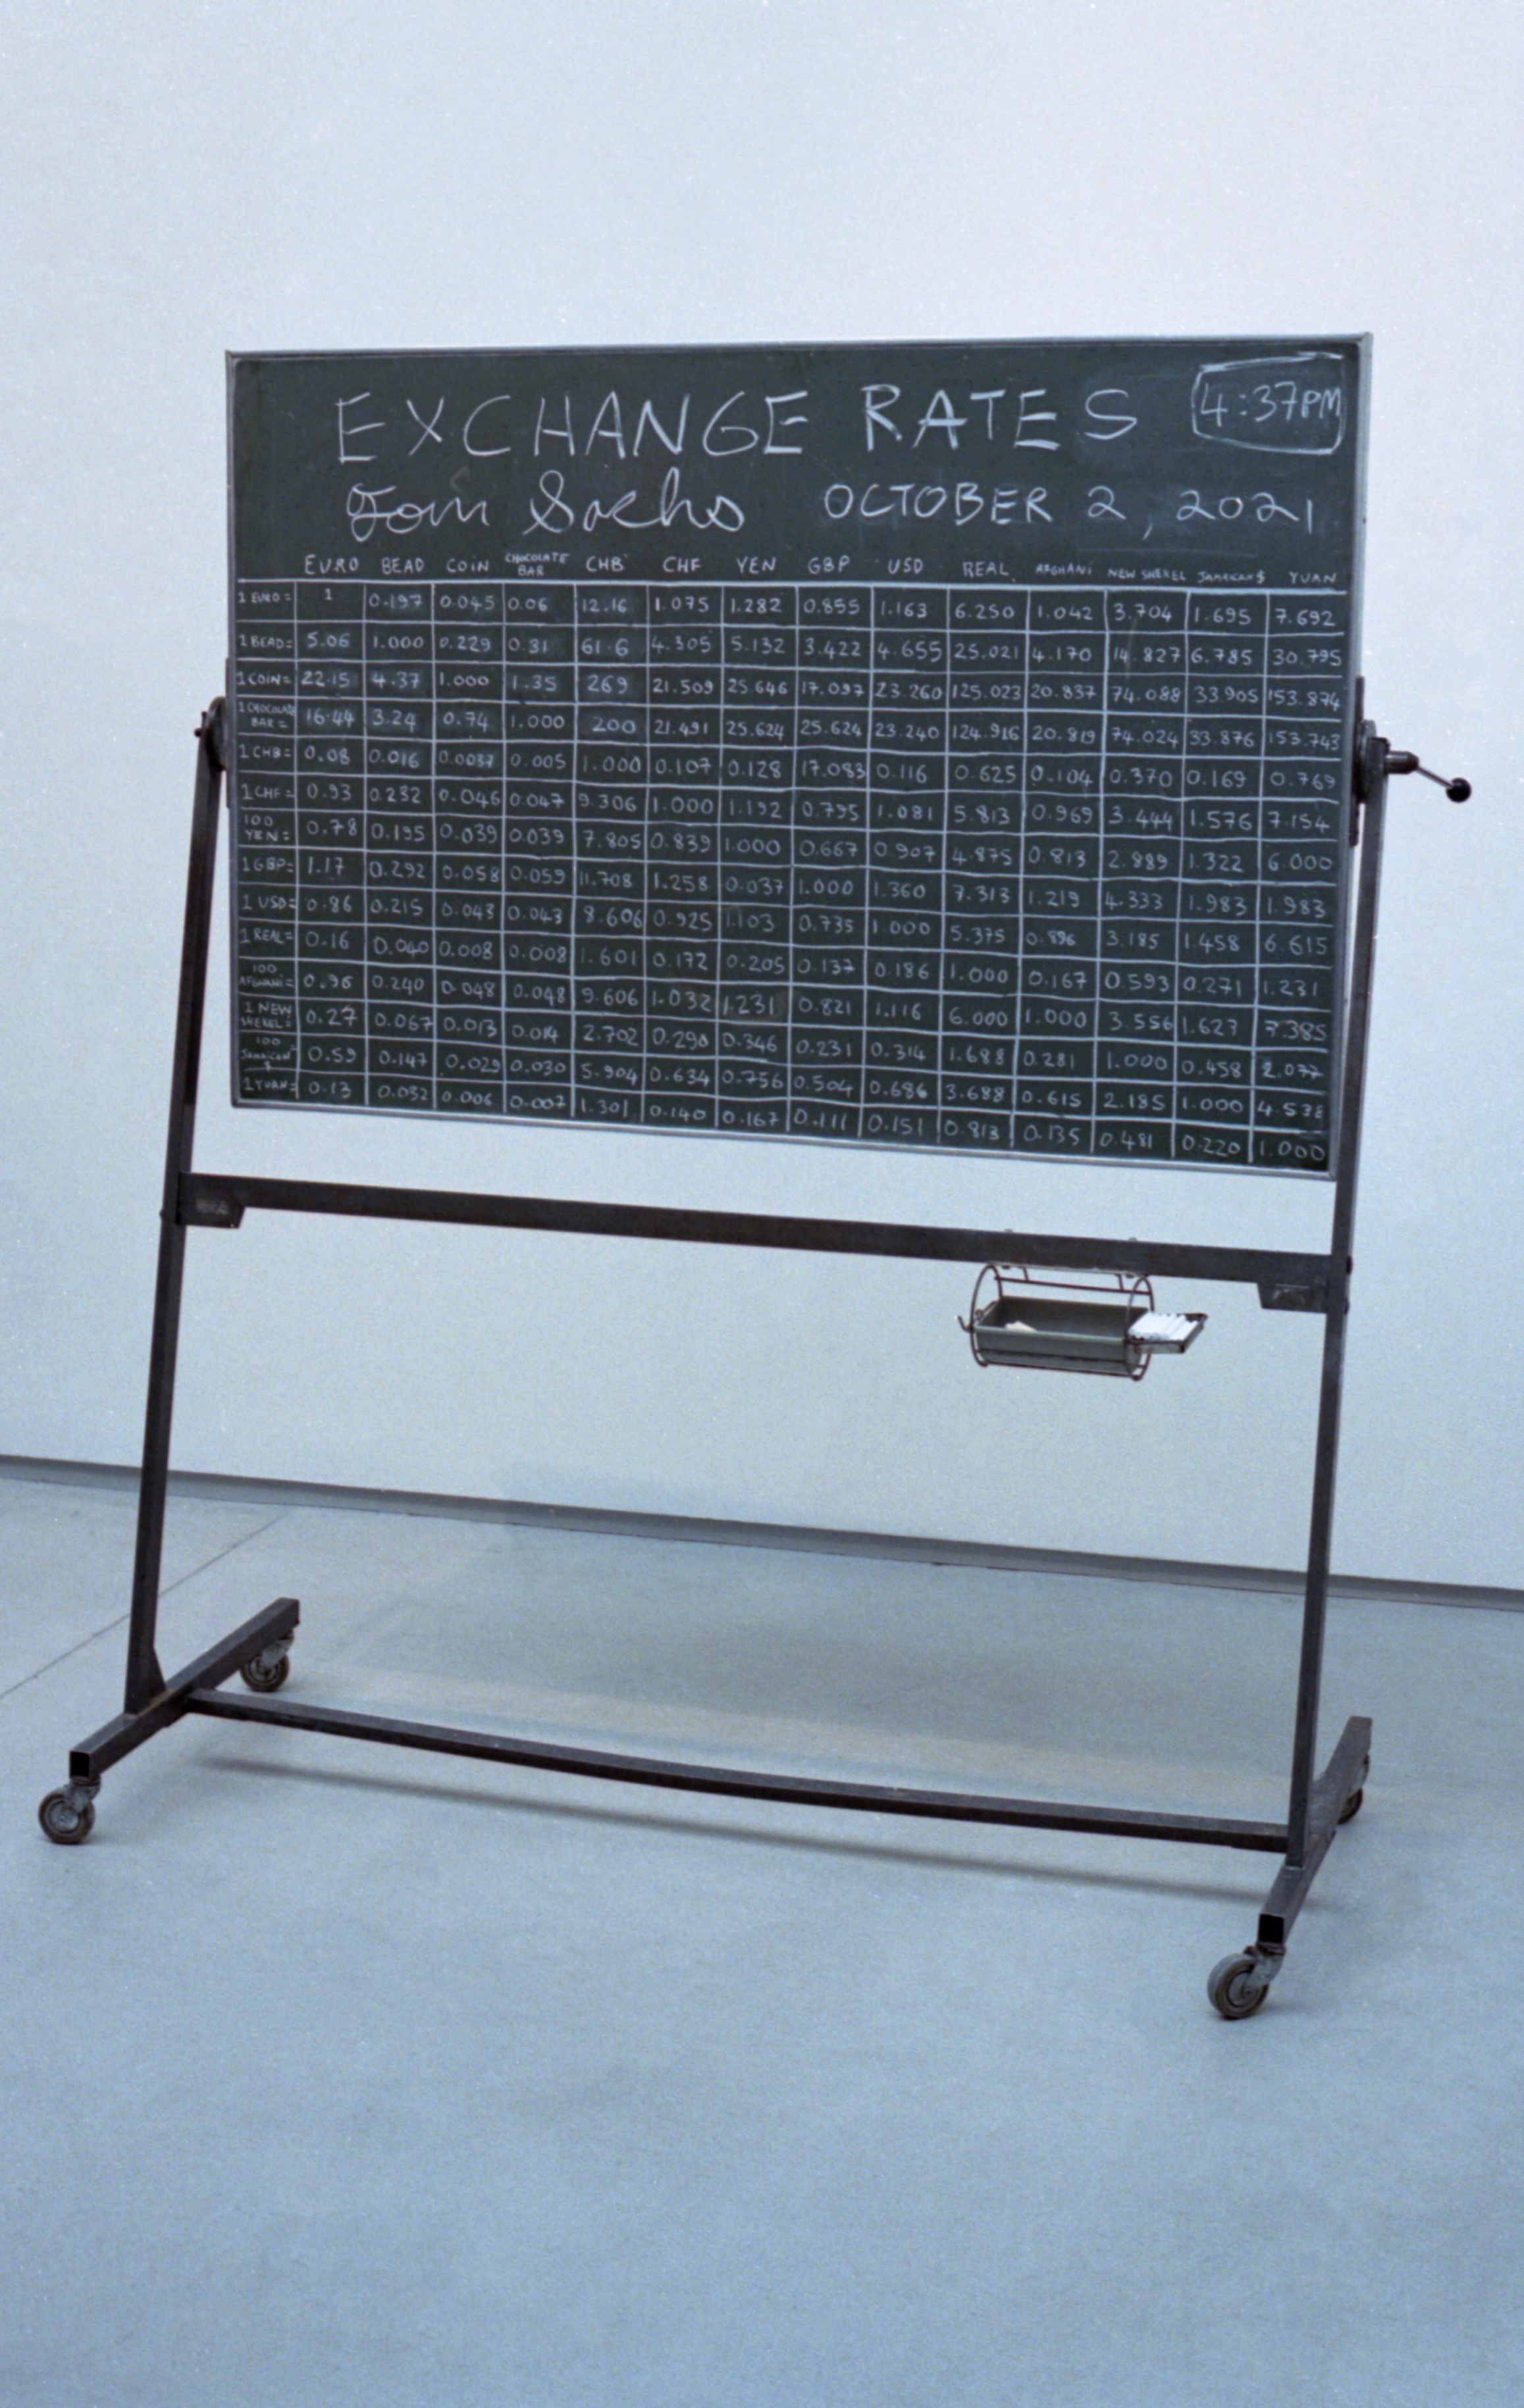 EXCHANGE RATES 4:37PM
Tom Sachs OCTOBER 2, 2021
EURO BEAD COIN CHOCOLATE BAR CHB CHF YEN GBP USD REAL AFGHANI NEW SHEKEL JAMAICAN $ YUAN
1 EURO = 1 0.197 0.045 0.06 12.16 1.075 1.282 0.855 1.163 6.250 1.042 3.704 1.695 7.692
1 BEAD = 5.06 1.000 0.229 0.31 61.6 4.305 5.132 3.422 4.655 25.021 4.170 14.827 6.785 30.795
1 COIN = 22.15 4.37 1.000 1.35 269 21.509 25.646 17.097 23.260 125.023 20.837 74.088 33.905 153.874
1 CHOCOLATE BAR = 16.44 3.24 0.74 1.000 200 21.491 25.624 25.624 23.240 124.916 20.819 74.024 33.876 153.743
1 CHB = 0.08 0.016 0.0037 0.005 1.000 0.107 0.128 17.083 0.116 0.625 0.104 0.370 0.169 0.769
1 CHF = 0.93 0.232 0.046 0.047 9.306 1.000 1.192 0.795 1.081 5.813 0.969 3.444 1.576 7.154
100 YEN = 0.78 0.195 0.039 0.039 7.805 0.839 1.000 0.667 0.907 4.875 0.813 2.889 1.322 6.000
1 GBP = 1.17 0.292 0.058 0.059 11.708 1.258 0.037 1.000 1.360 7.313 1.219 4.333 1.983 1.983
1 USD = 0.86 0.215 0.043 0.043 8.606 0.925 1.103 0.735 1.000 5.375 0.896 3.185 1.458 6.615
1 REAL = 0.16 0.040 0.008 0.008 1.601 0.172 0.205 0.137 0.186 1.000 0.167 0.593 0.271 1.231
100 AFGHANI = 0.96 0.240 0.048 0.048 9.606 1.032 1.231 0.821 1.116 6.000 1.000 3.556 1.627 7.385
1 NEW SHEKEL = 0.27 0.067 0.013 0.014 2.702 0.290 0.346 0.231 0.314 1.688 0.281 1.000 0.458 2.077
100 JAMAICAN $ 0.59 0.147 0.029 0.030 5.904 0.634 0.756 0.504 0.686 3.688 0.615 2.185 1.000 4.538
1 YUAN = 0.13 0.032 0.006 0.007 1.301 0.140 0.167 0.111 0.151 0.813 0.135 0.481 0.220 1.000